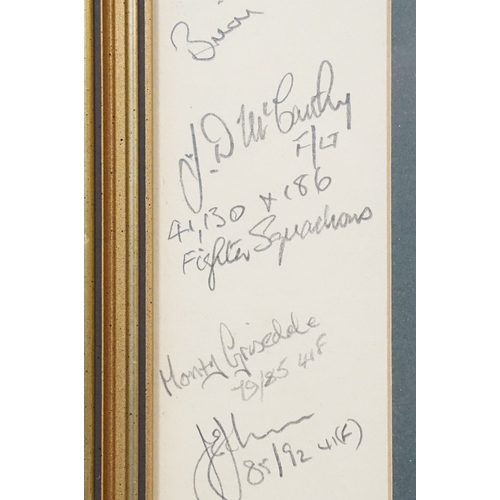 Brian
J. D McCarthy
F/LT
41, 130 + 186
Fighter Squadrons
Monty Grisedale
79/85 41F
85/92 41(F)